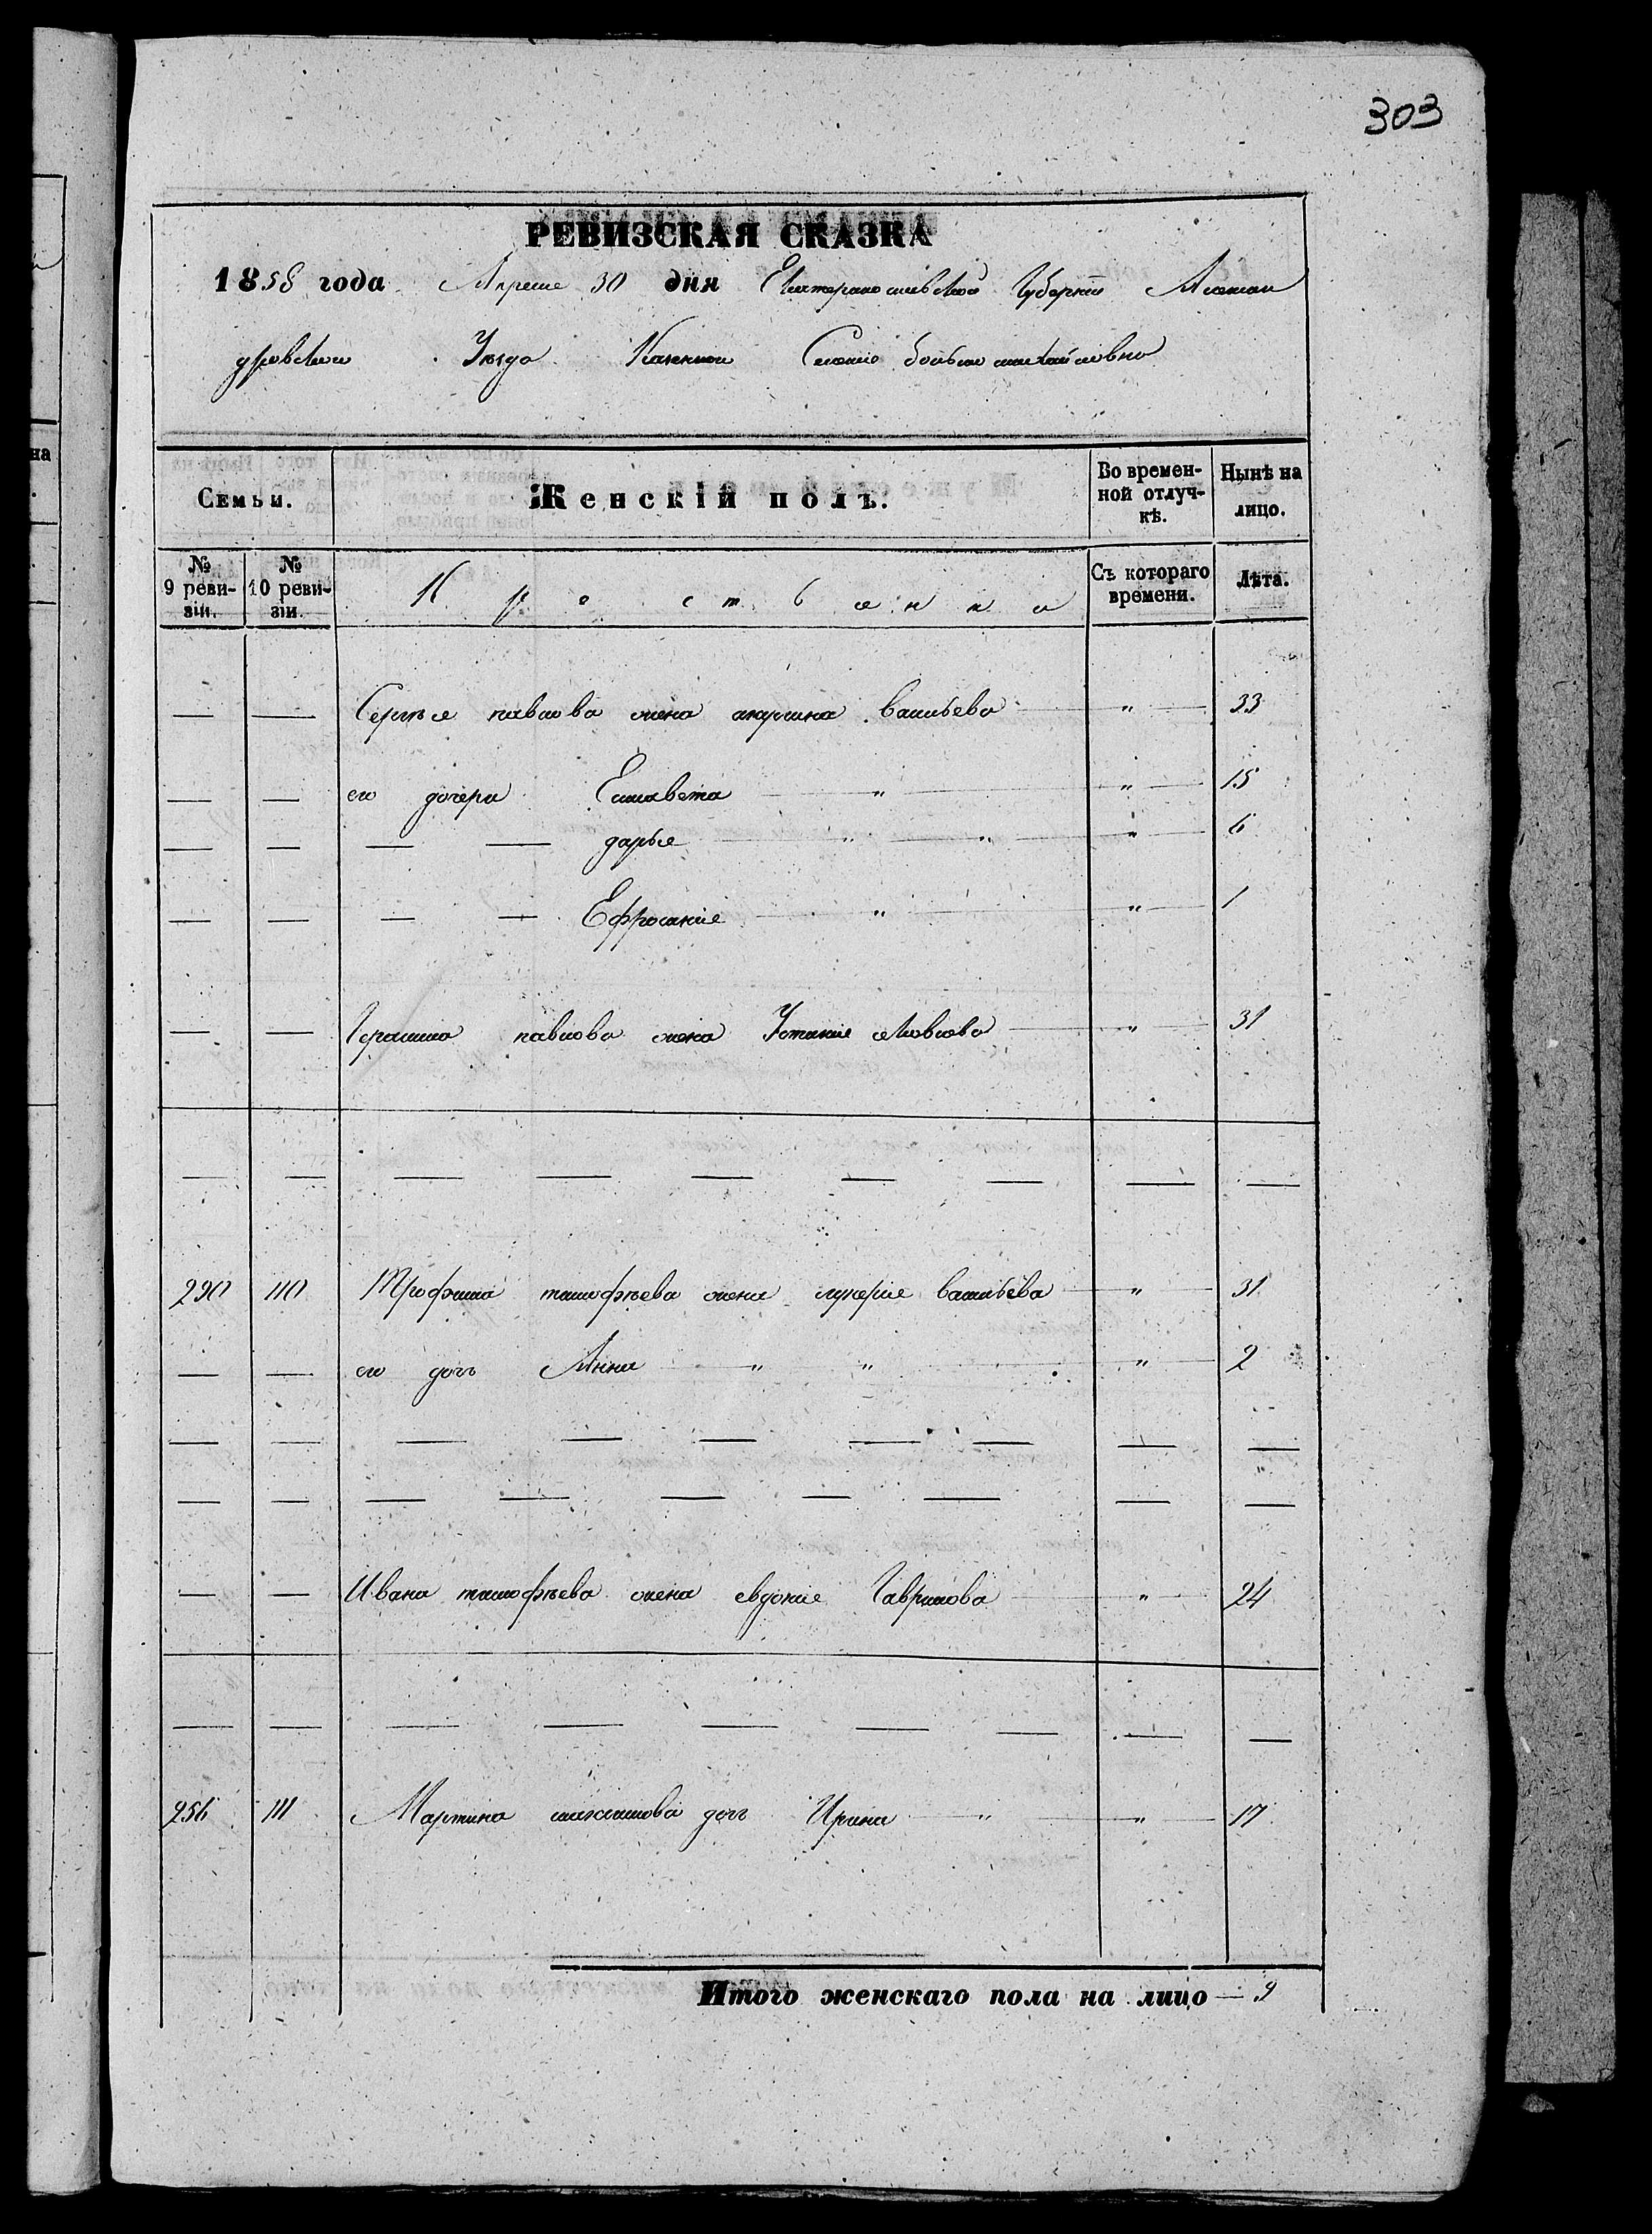 303
РЕВИЗСКАЯ СКАЗКА
1858 года Апреля 30 дня Екатеринославской Губерніи Алексан
дровскаго Уезда Казенного Селенія больше михайловки
Семьи. Женскій полъ. Во времен-ной отлуч-кѣ. Нынѣ на лицо.
№ 9 реви-зіи. № 10 реви-зіи. Съ котораго времени. Лѣта.
— — Сергѣя павлова жена акулина васильева " 33
— — его дочери Елисавета " " 15
— — — — дарья " " " 6
— — — — Ефросинія " " 1
— — Герасима павлова жена Устинія " 31
— — — — — — — — —
290 110 Трофима тимофѣева жена лукерія васильева " 31
— — его дочь Анна " " " 2
— — — — — — — — —
— — — — — — — — —
— — Ивана тимофѣева жена евдокія Гаврилова " 24
— — — — — — — — —
256 111 Мартина максимова дочь Ирина " " 17
Итого женскаго пола на лицо — 9